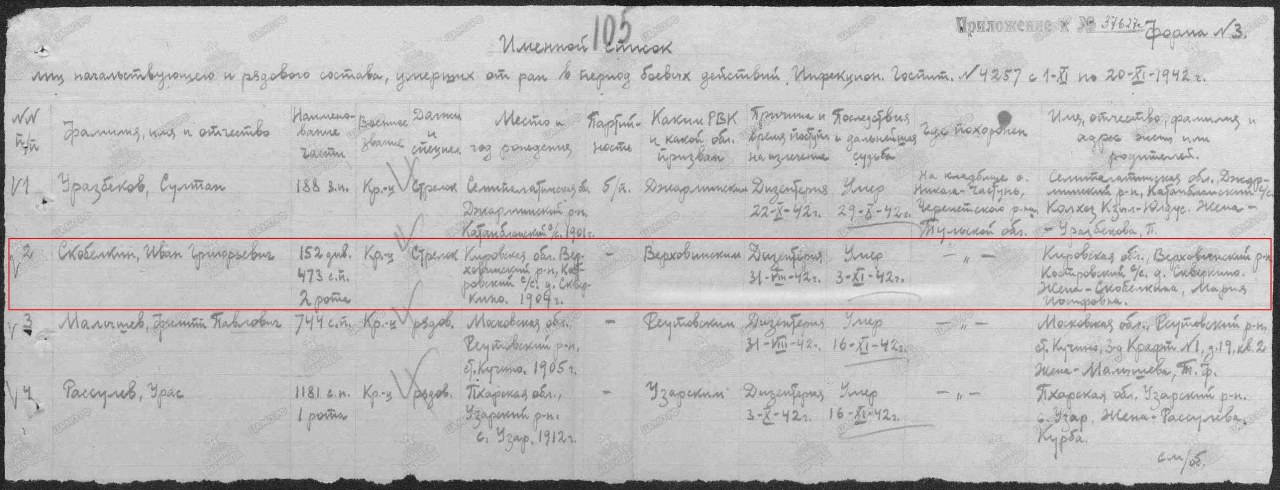 105
Приложение к № 37627с Форма №3.
Именной список
лиц начальствующего и рядового состава, умерших от ран в период боевых действий Инфекцион. Госпит. №4257 с 1-XI по 20-XI-1942 г.
NN п/п
Фамилия, имя и отчество
Наимено-
вание
части
Военное
звание
Должн
и
специал.
Место и
год рождения
Партий-
ность
Каким РВК
и какой обл.
призван
Причина и
время поступ.
на излечение
Последствия
и дальнейшая
судьба
Где похоронен
Имя, отчество, фамилия и
адрес жены или
родителей.
V1 Уразбеков, Султан
188 з.п.
Кр-ц
Стрелок
Семипалатинская об.
Джарминский р-н,
1901 г.
б/п.
Джарминским
Дизентерия
22-X-42г.
Умер
29-X-42г.
На кладбище д.
Черепетского р-на
Тульской обл.
Семипалатинская обл. Джар-
минский р-н,
Колхоз Кзыл-Юлдус. Жена -
- Уразбекова, П.
2 Скобелкин, Иван Григорьевич
152 див.
473 с.п.
2 рота
Кр-ц
Стрелок
Кировская обл. Вер-
ховинский р-н, Кост-
ровский с/с. д. Сквер-
кино. 1904г.
-
Верховинским
Дизентерия
31-VIII-42г.
Умер
3-XI-42г.
— „ —
Кировская обл., Верховинский р-н
Костровский с/с. д. Скверкино.
Жена - Скобелкина, Мария
V3 Малышев, Филипп Павлович
744 с.п.
Кр-ц
рядов.
Московская обл.
Реутовский р-н,
ст. Кучино. 1905г.
-
Реутовским
Дизентерия
31-VIII-42г.
Умер
16-XI-42г.
— „ —
Московская обл., Реутовский р-н,
ст. Кучино, з-д Крафт №1, д.19, кв.2
Жена - Малышева, Т. Ф.
V4 Рассулев, Урас
1181 с.п.
1 рота
Кр-ц
рядов.
Пхарская обл.,
Узарский р-н.
с. Узар. 1912г.
-
Узарским
Дизентерия
3-X-42г.
Умер
16-XI-42г.
— „ —
Пхарская обл, Узарский р-н.
с. Узар. Жена - Рассулева,
Курба.
см/об.